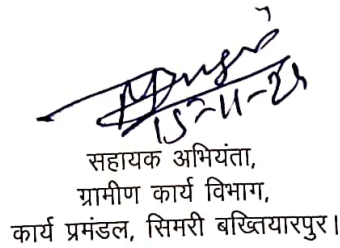 15-11-25
सहायक अभियंता,
ग्रामीण कार्य विभाग,
कार्य प्रमंडल, सिमरी बख्तियारपुर।